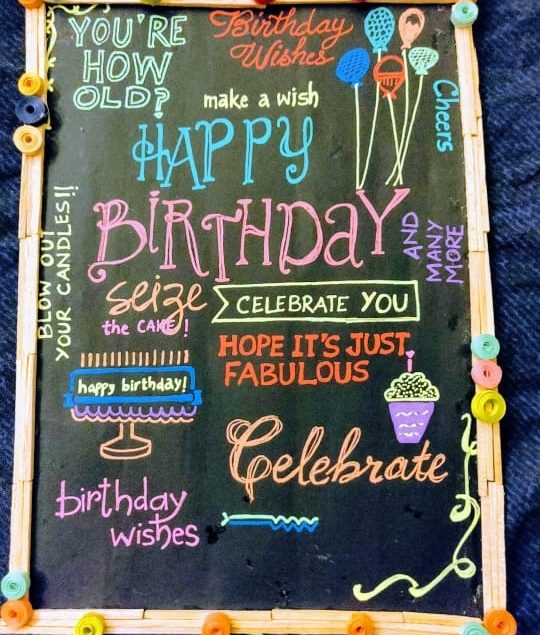 YOU'RE
HOW
OLD?
Birthday
Wishes
make a wish
Cheers
HAPPY
BIRTHDAY
AND
MANY
MORE
BLOW OUT
YOUR CANDLES!!
seize
the CAKE!
CELEBRATE YOU
HOPE IT'S JUST
FABULOUS
happy birthday!
Celebrate
birthday
wishes